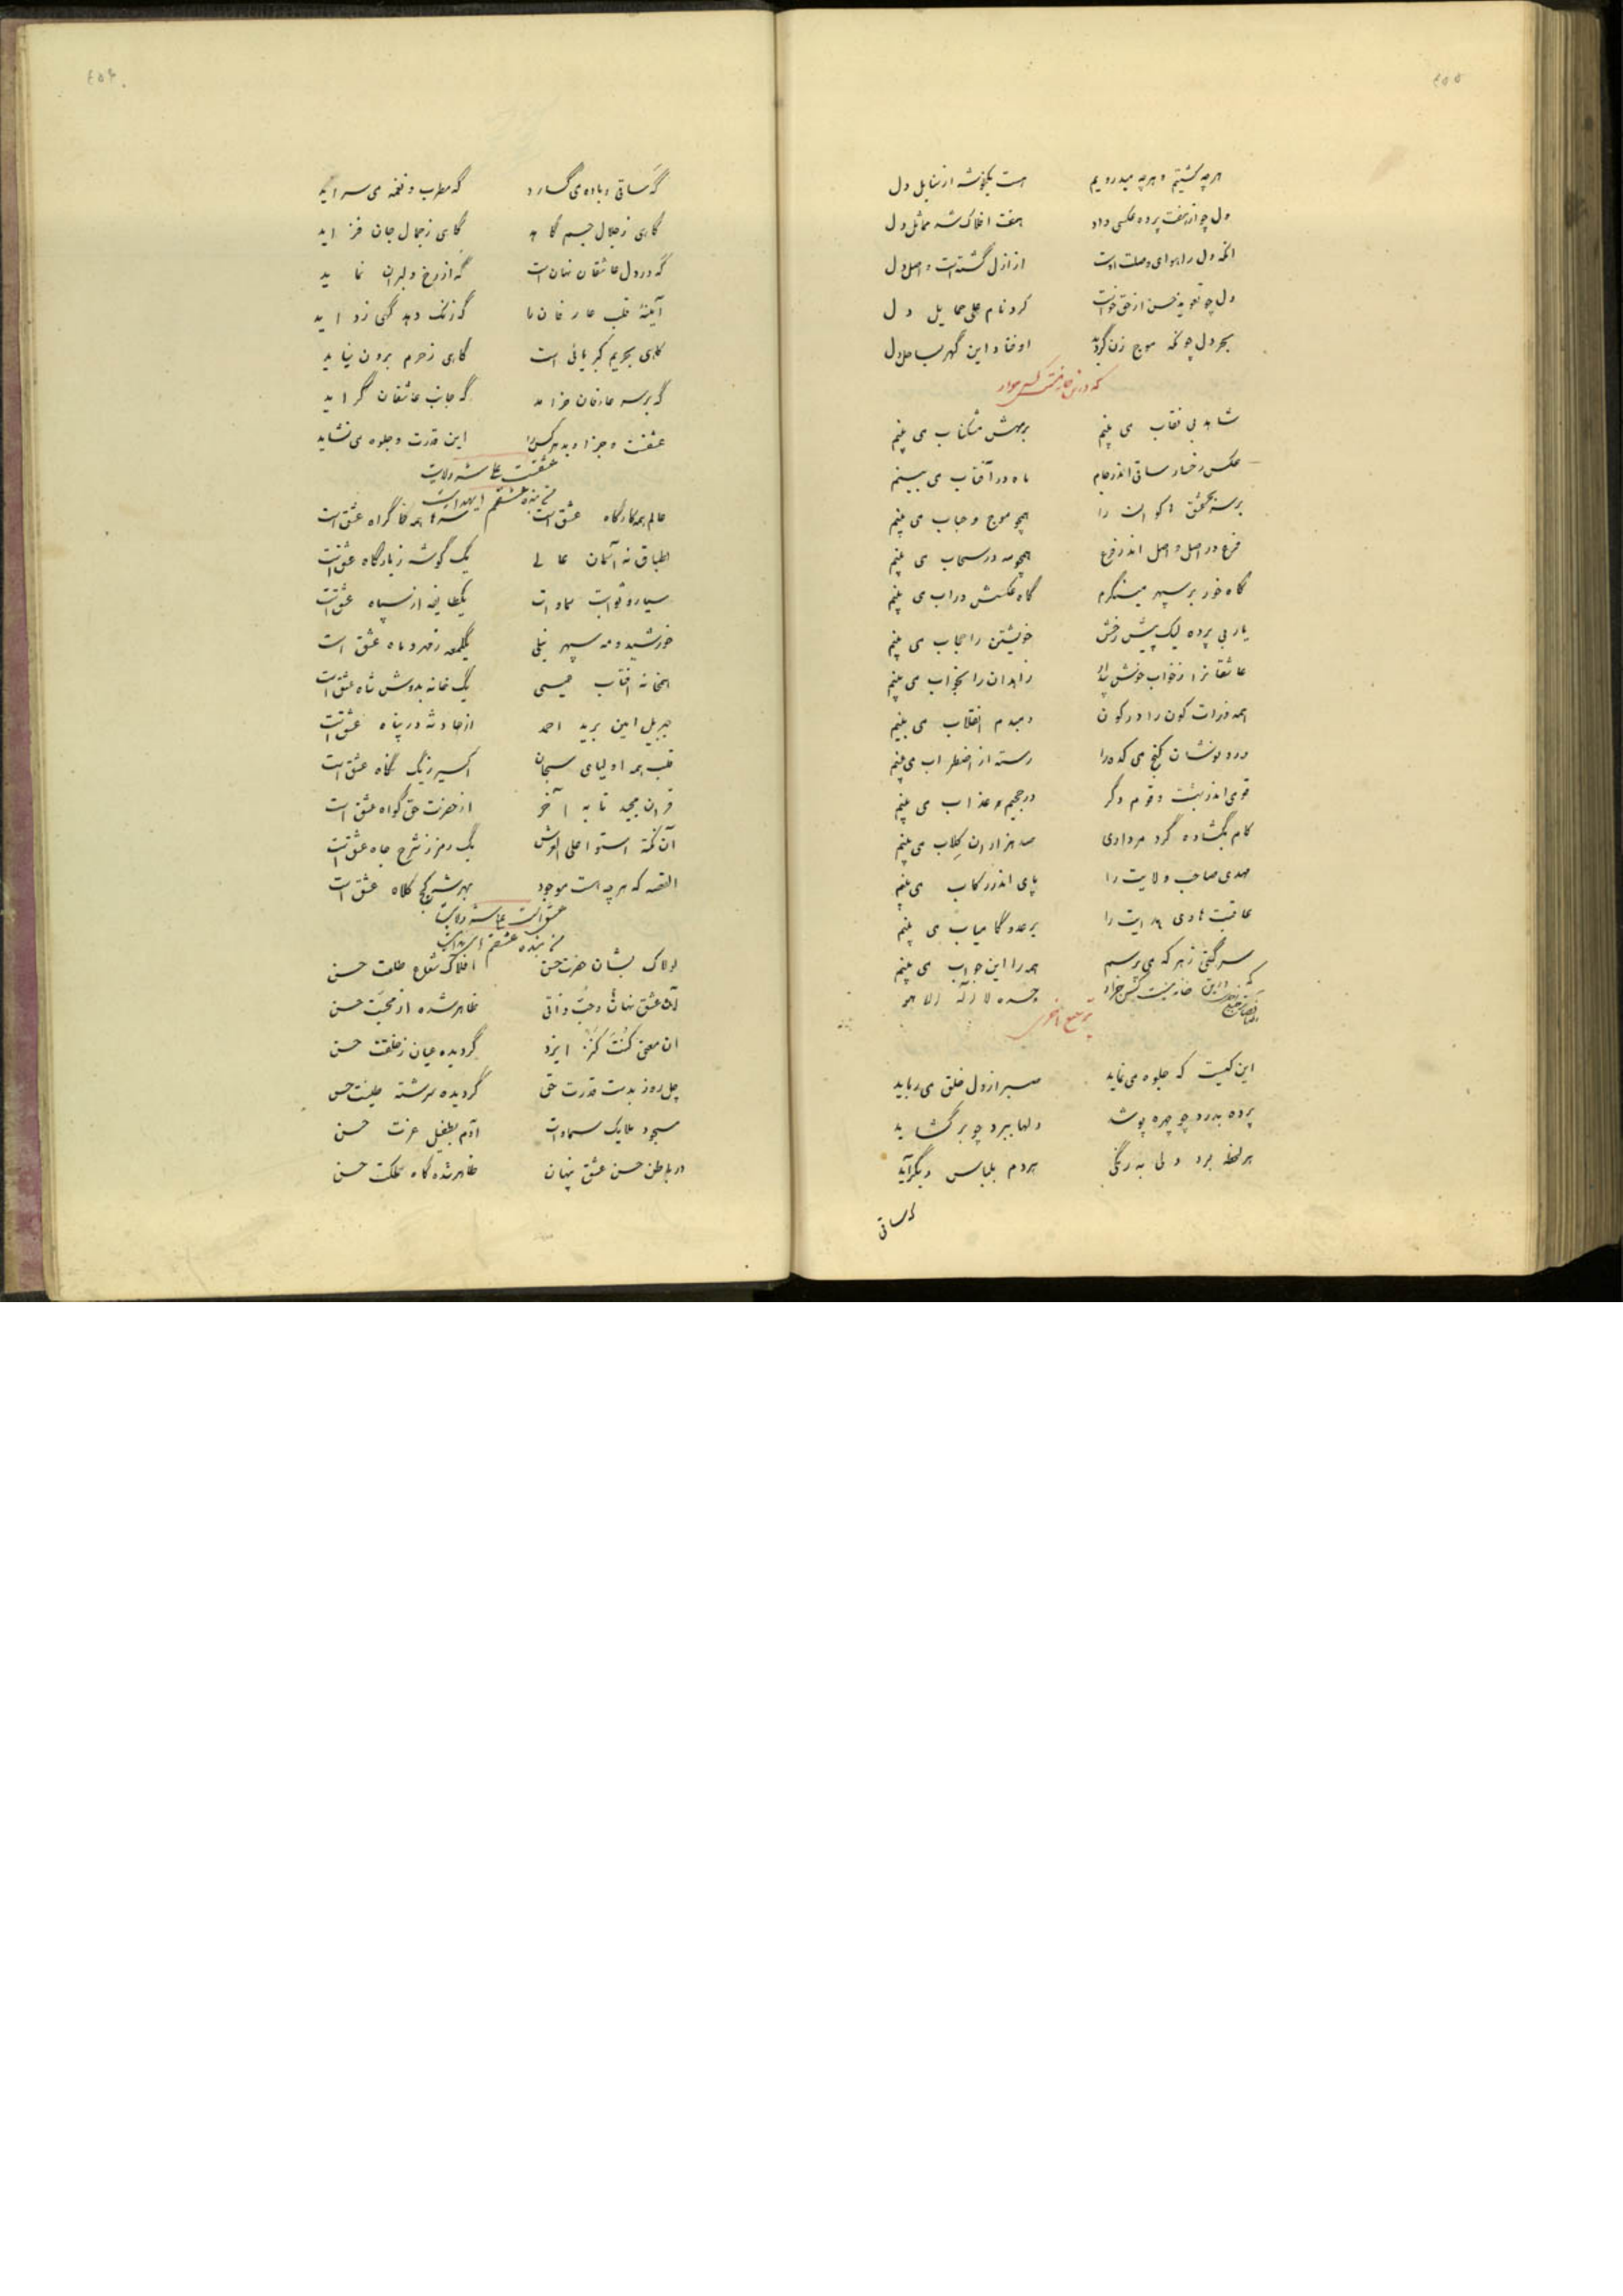 ۴۵۵
هرچه کشتیم و هرچه میدرویم هست یکخوشه از سنابل دل
دل چو از هفت پرده عکسی داد هفت افلاک شد مماثل دل
آنکه دل را هوای وصلت اوست از ازل گشته است واصل دل
دل چو تعویذ حسن از حق خواست کرد نام علی حمایل دل
بحر دل چونکه موج زن گردید اوفتاد این گهر بساحل دل
که درین خانه نیست کس جز او
شاهد بی نقاب می بینم برمهش مشکناب می بینم
عکس رخسار ساقی اندر جام ماه در آفتاب می بینم
برسر بحر عشق اکوان را همچو موج و حباب می بینم
فرع در اصل و اصل اندر فرع همچو مه در سحاب می بینم
گاه خور بر سپهر مینگرم گاه عکسش در اب می بینم
یار بی پرده لیک پیش رخش خویشتن را حجاب می بینم
عاشقانرا ز خواب خوش بیدار زاهدان را بخواب می بینم
همه ذرات کون را در کون دمبدم انقلاب می بینم
درد نوشان کنج می کده را رسته از اضطراب می بینم
قومی اندر بهشت و قوم دگر در جحیم و عذاب می بینم
کام بگشاده گرد مرداری صد هزاران کلاب می بینم
مهدی صاحب ولایت را پای اندر رکاب می بینم
عاقبت هادی هدایت را بر عدو کامیاب می بینم
سر گیتی ز هر که می پرسم همه را این جواب می بینم
که درین خانه نیست کس جز او وحده لا اله الا هو
ترجیع اخری
این کیست که جلوه می نماید صبر از دل خلق می رباید
پرده بدرد چو چهره پوشد دلها ببرد چو برگشاید
هر لحظه برد دلی به رنگی هر دم بلباس دیگر آید
که ساقی
۴۵۶
گه ساقی و باده می گسارد گه مطرب و نغمه می سراید
گاهی ز جلال جسم کاهد گاهی ز جمال جان فزاید
گه در دل عاشقان نهان است گه از رخ دلبران نماید
آیینه قلب عارفان را گه زنک دهد گهی زداید
گاهی بحریم کبریائی است گاهی ز حرم برون نیاید
گه بر سر عارفان خرامد گه جانب عاشقان گراید
عشقست و جز او بدهر کس را این قدرت و جلوه می نشاید
عشقست علی شه ولایت
من بنده عشقم ای هدایت
عالم همه کارگاه عشق است سرها همه خاک راه عشق است
اطباق نه آسمان عالی یک گوشه ز بارگاه عشق است
سیار و ثوابت سماوات یکطایفه از سپاه عشق است
خورشید و مه سپهر نیلی یکلمعه ز مهر و ماه عشق است
همخانه افتاب عیسی یک خانه بدوش شاه عشق است
جبریل امین برید احمد از حادثه در پناه عشق است
قلب همه اولیای سبحان اکسیر ز یک نگاه عشق است
قران مجید تا به آخر از حضرت حق گواه عشق است
آن نکته استوا علی العرش یک رمز ز شرح جاه عشق است
القصه که هرچه است موجود بهر شه کج کلاه عشق است
عشق است علی شه ولایت
من بنده عشقم ای هدایت
لولاک بشان حضرت حسن افلاک شعاع طلعت حسن
آن عشق نهان و حب ذاتی ظاهر شده از محبت حسن
ان معنی کنت کنز ایزد گردیده عیان ز خلقت حسن
چل روز بدست قدرت حق گردیده سرشته طینت حسن
مسجود ملایک سماوات آدم بطفیل عزت حسن
در باطن حسن عشق پنهان ظاهر شده گاه حسن